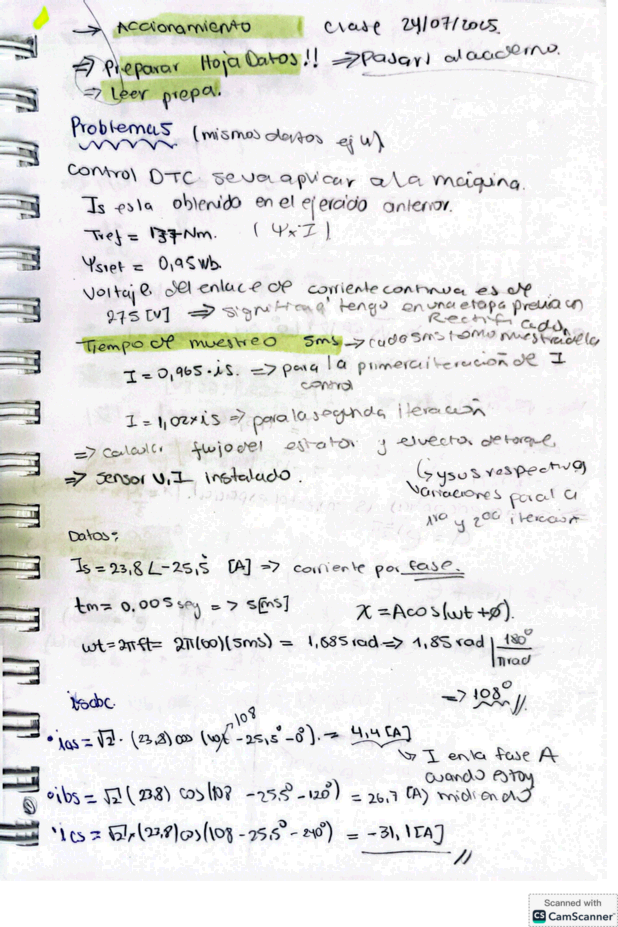 → Accionamiento Clase 24/07/2025.
⇒ Preparar Hoja Datos!! ⇒ Pasarl al cuaderno.
⇒ Leer prepa.
Problema 5 (mismos datos ej 4)
Control DTC se va aplicar a la máquina.
Is es la obtenido en el ejercicio anterior.
Tref = 137 Nm. (Ψ×I)
Ψsref = 0,95 wb.
Voltaje del enlace de corriente continua es de
275 [V] ⇒ significa q' tengo en una etapa previa un
Rectificador
Tiempo de muestreo 5ms → cada 5ms tomo muestra de la
I = 0,965·is. ⇒ para la primera iteración de I
control
I = 1,02×is ⇒ para la segunda iteración
⇒ calcular flujo del estator y el vector de torque,
⇒ sensor V,I instalado.
↳ y sus respectivas
variaciones para la
1ra y 2da iteración
Datos:
Is = 23,8 ∠-25,5° [A] ⇒ corriente por fase.
tm = 0.005 seg => 5[ms]
X = A cos(wt+ø).
wt = 2πft = 2π(60)(5ms) = 1,885 rad ⇒ 1,85 rad | 180° / πrad
⇒ 108° //
isabc
108
• ias = √2 · (23,8) cos (wt - 25,5° - 0°). = 4,4 [A]
↳ I en la fase A
cuando estoy
midiendo
• ibs = √2 (23,8) cos(108 - 25,5° - 120°) = 26,7 [A]
• ics = √2 · (23,8) cos(108 - 25,5° - 240°) = -31,1 [A] //
Scanned with
CS CamScanner